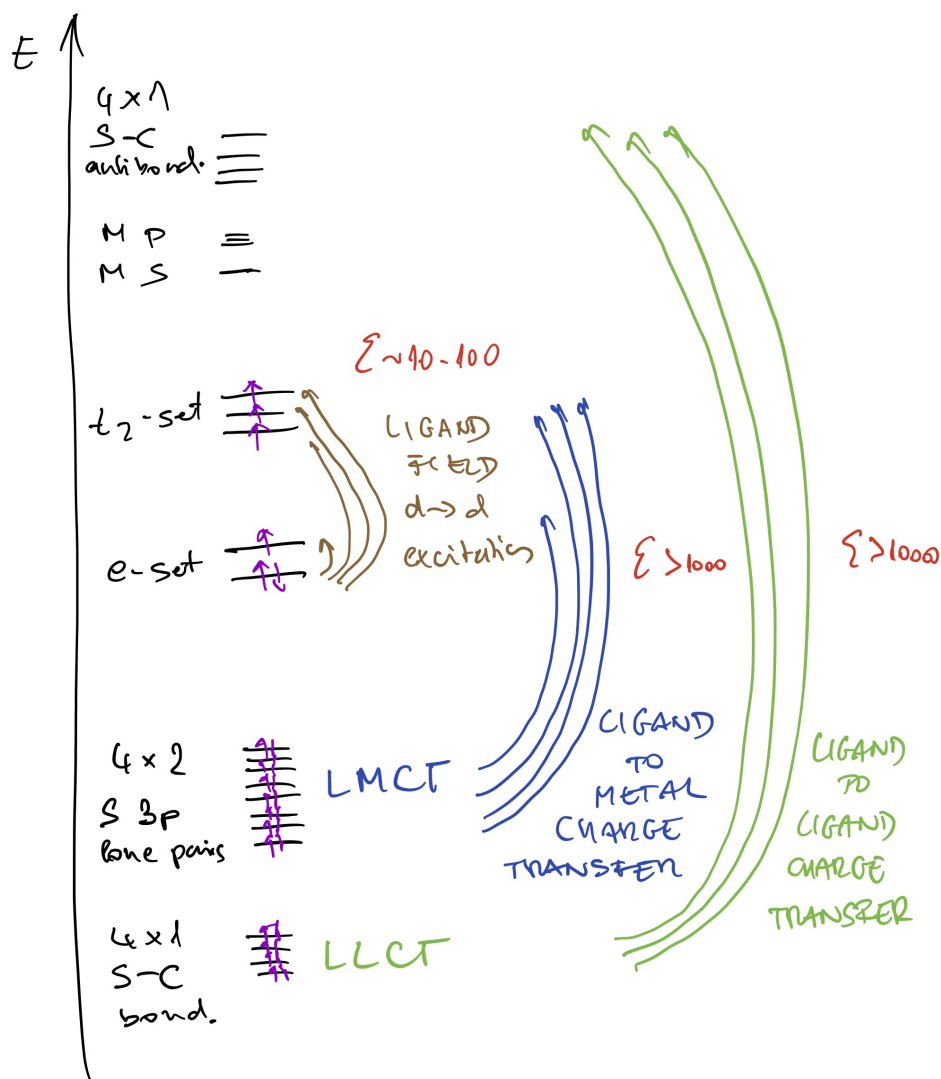 E
4 x 1
S-C
antibond.
M P
M S
ε ~ 10-100
t2-set
LIGAND
FIELD
d→d
excitations
e-set
ε >1000
ε >10000
4 x 2
S 3p
lone pairs
LMCT
LIGAND
TO
METAL
CHARGE
TRANSFER
LIGAND
TO
LIGAND
CHARGE
TRANSFER
4 x 1
S-C
bond.
LLCT